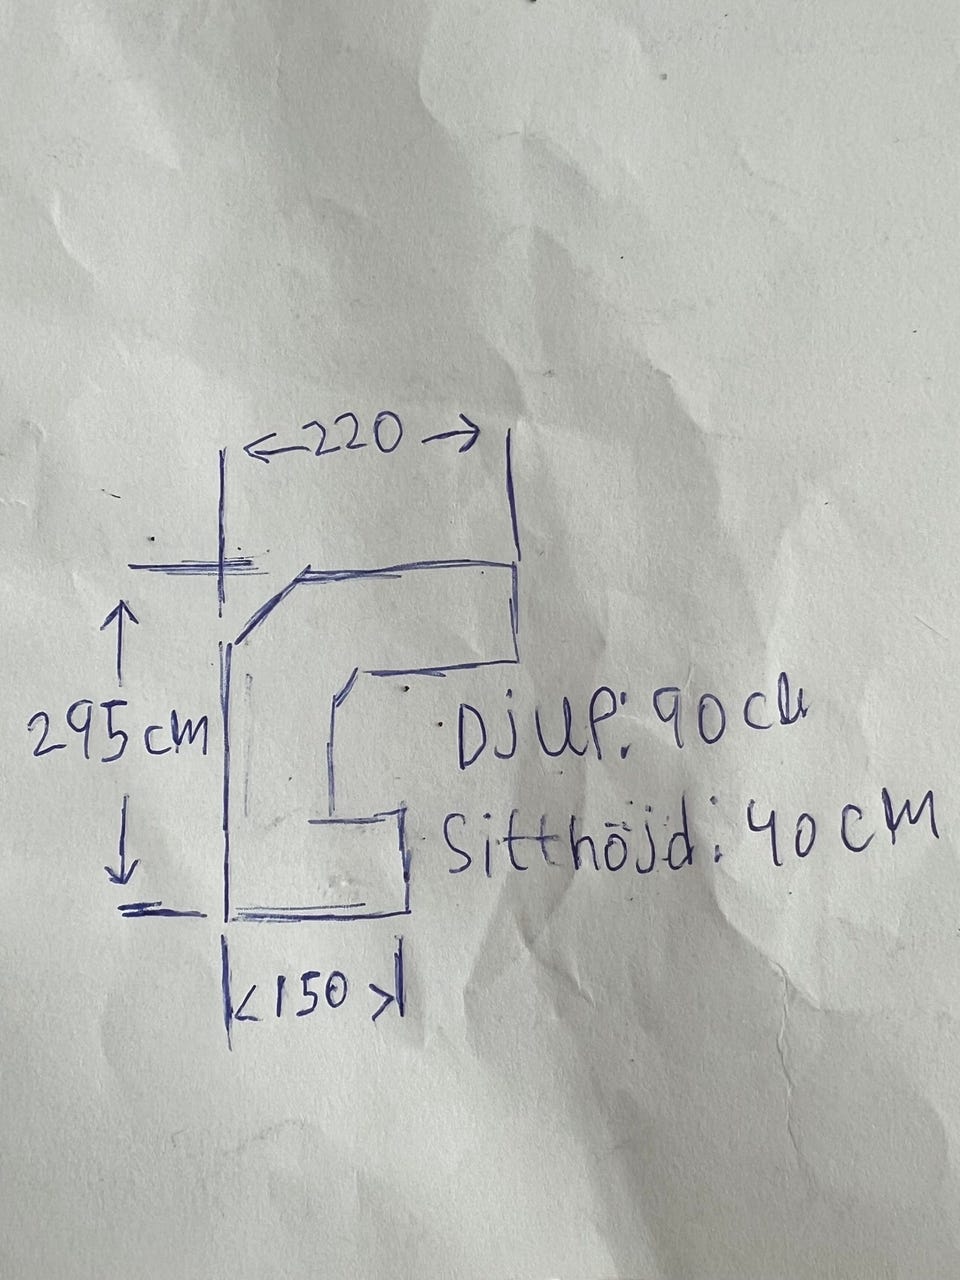 220
295cm
Djup: 90cm
Sitthöjd: 40cm
150